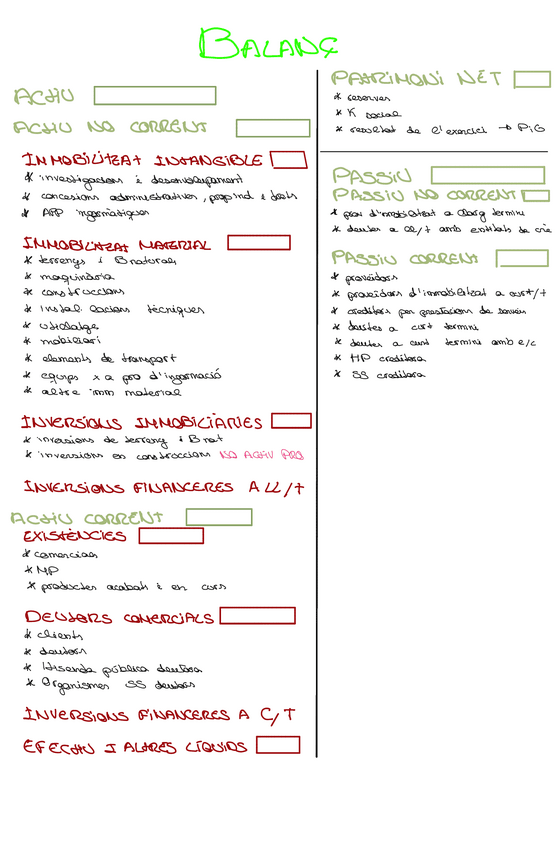 BALANÇ
ACTIU
ACTIU NO CORRENT
INMOBILITZAT INTANGIBLE
* investigacions i desenvolupament
* concesions administratives, prop ind i drets
* APP informàtiques
IMMOBILITZAT MATERIAL
* terrenys i B naturals
* maquinària
* construccions
* instal·lacions tècniques
* utillatge
* mobiliari
* elements de transport
* equips x a pro d'informació
* altre imm material
INVERSIONS IMMOBILIÀRIES
* inversions de terreny i B nat
* inversions en construccions NO ACTIV PRO
INVERSIONS FINANCERES A LL/T
ACTIU CORRENT
EXISTÈNCIES
* comercials
* MP
* productes acabats i en curs
DEUTORS COMERCIALS
* clients
* deutors
* Hisenda pública deutora
* Organismes SS deutors
INVERSIONS FINANCERES A C/T
EFECTIU I ALTRES LÍQUIDS
PATRIMONI NET
* reserves
* K social
* resultat de l'exercici → PiG
PASSIU
PASSIU NO CORRENT
* prov d'immobilitzat a llarg termini
* deutes a ll/t amb entitats de crè
PASSIU CORRENT
* proveïdors
* proveïdors d'immobilitzat a curt/t
* creditors per prestacions de serveis
* deutes a curt termini
* deutes a curt termini amb e/c
* HP creditora
* SS creditora